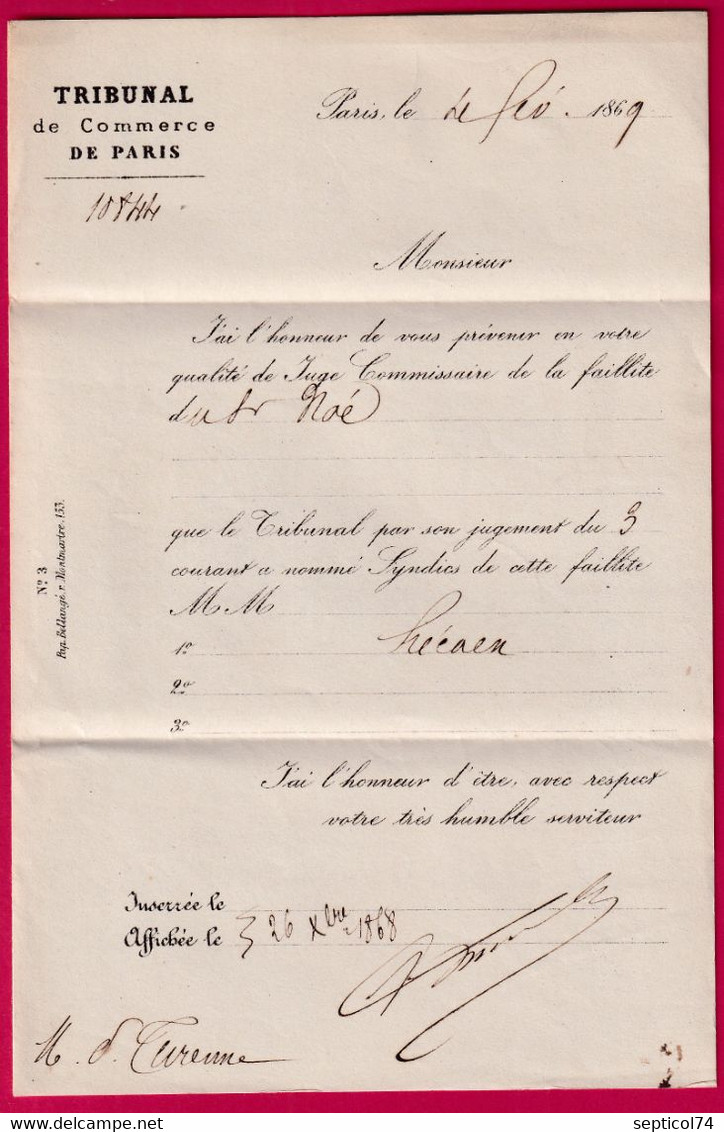 TRIBUNAL
de Commerce
DE PARIS
10844
Paris, le 4 fév. 1869
Monsieur
J'ai l'honneur de vous prévenir en votre
qualité de Juge Commissaire de la faillite
du Sr Noé
que le Tribunal par son jugement du 3
courant a nommé Syndics de cette faillite
M.M
1o Hécaen
2o
3o
J'ai l'honneur d'être, avec respect
votre très humble serviteur
Inserrée le
Affichée le 26 Xbre 1868
M. d. Turenne
No 3
Pap. Bellangé r. Montmartre. 153.
SEPTICOL74